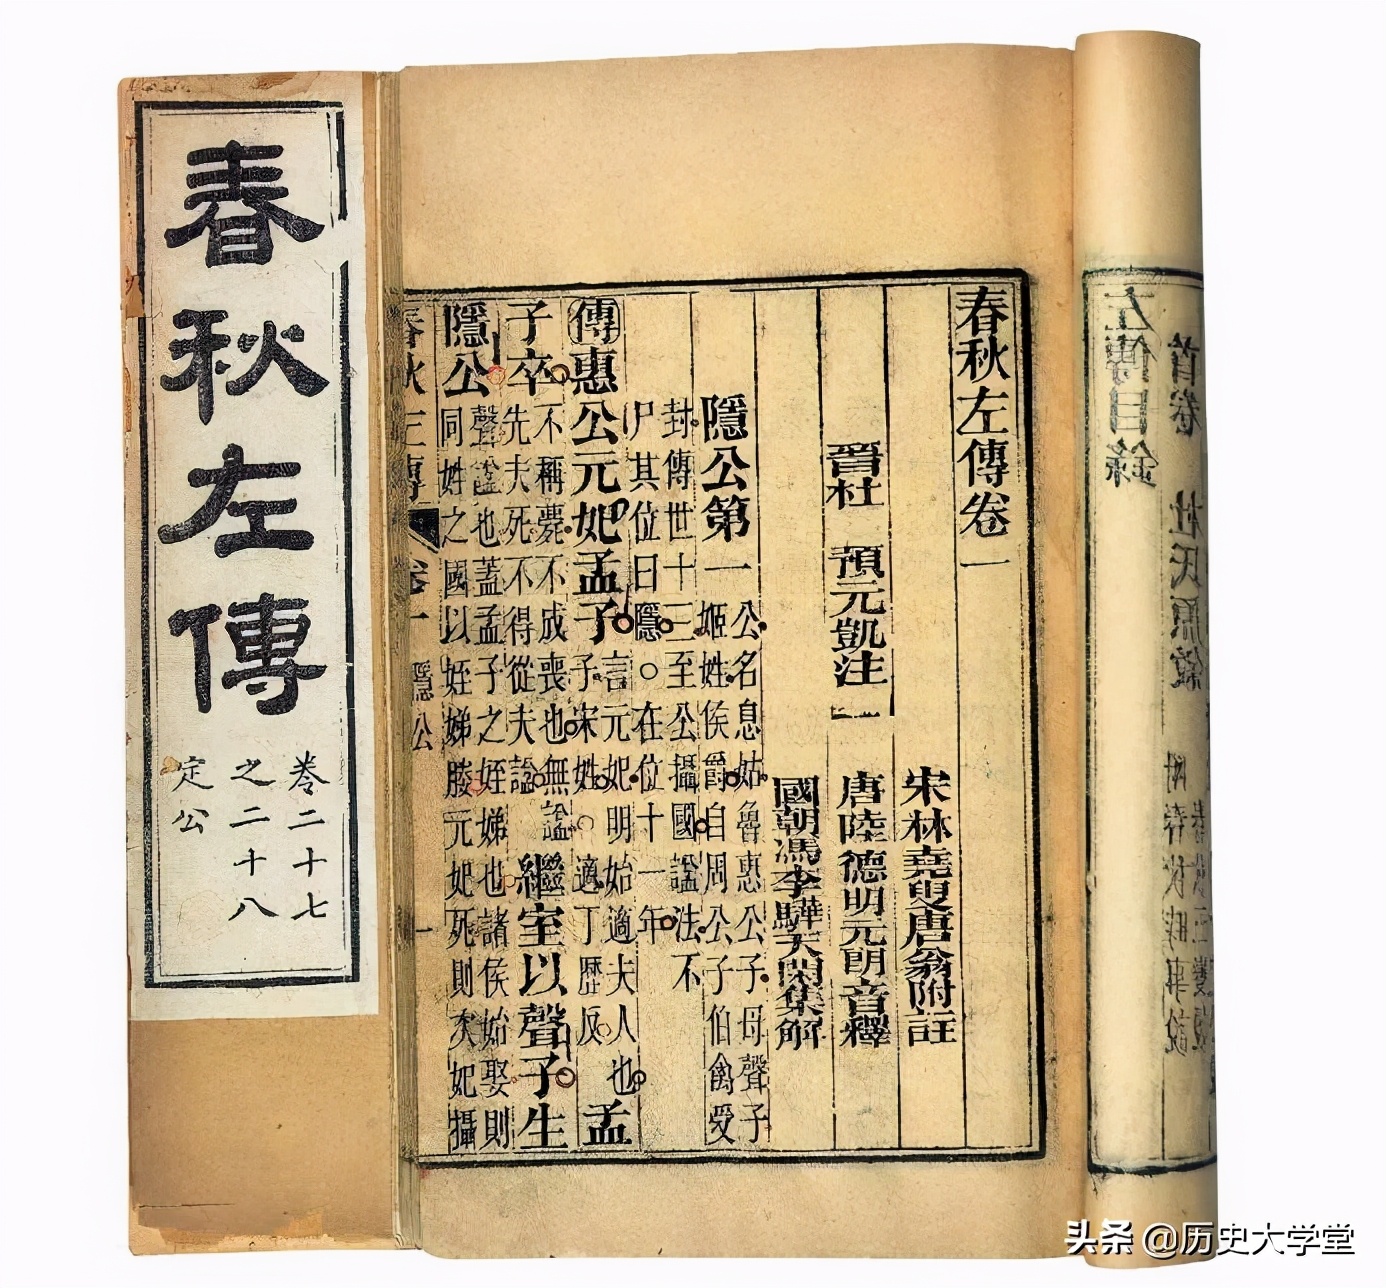 左傳目錄
首卷 杜氏原
春秋左傳卷一
宋林堯叟唐翁附註
晉杜 預元凱注 唐陸德明元朗音釋
國朝馮李驊天閑集解
隱公第一
公名息姑魯惠公子母聲子
姬姓侯爵自周公子伯禽受
封傳世十三至公攝國謚法不
尸其位曰隱○在位十一年
傳惠公元妃孟子
言元妃明始適夫人也
子宋姓○適丁歷反
孟
子卒
不稱薨不成喪也無謚
先夫死不得從夫謚
繼室以聲子生
隱公
聲謚也蓋孟子之姪娣也諸侯始娶則
同姓之國以姪娣媵元妃死則次妃攝
卷一 隱公 一
春秋左傳
卷二十七
之二十八
定公
头条 @历史大学堂